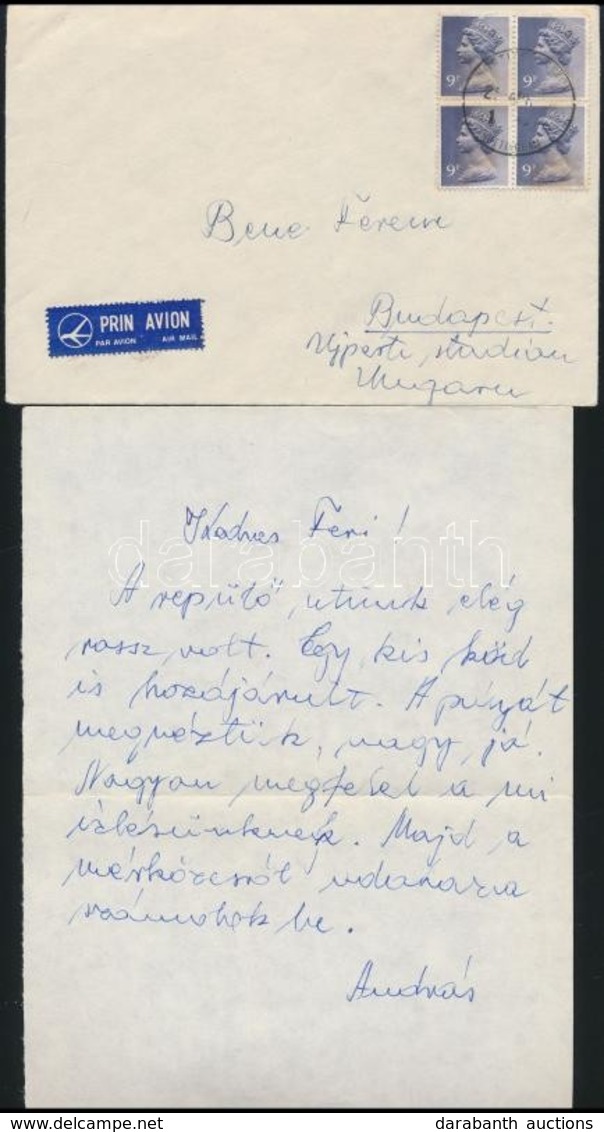 9P 9P
9P 9P
Bene Ferenc
PRIN AVION
PAR AVION AIR MAIL
Budapest.
Ujpesti, stadion
Ungaru
darabanth
Kedves Feri!
A repülő, utunk elég
rossz, volt. Egy, kis köd
is hozájárult. A pályát
megnéztük, nagy, jó.
Nagyon megfelel a mi
izlésünknek. Majd a
mérközésről utánna
számolok be.
András
www.delcampe.net
darabanth auctions